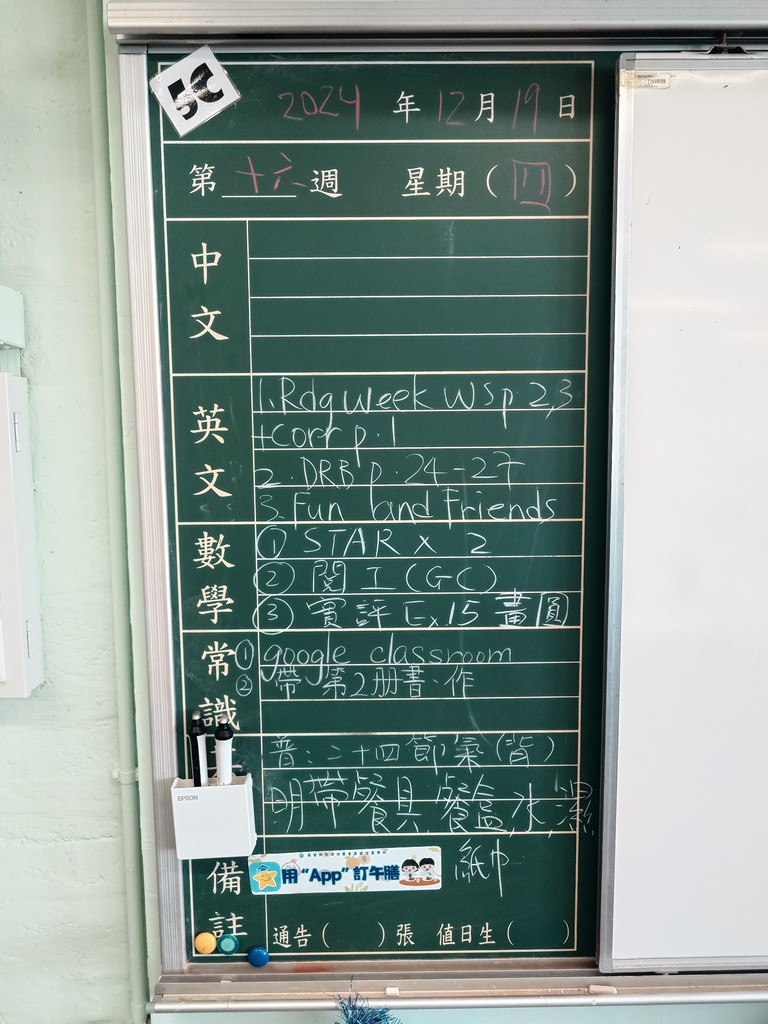 5C
2024 年 12 月 19 日
第 十六 週 星期（四）
中文
英文
1. Rdg week WS p 2,3
+corr p.1
2. DRB p.24-27
3. Fun land Friends
數學
① STAR x 2
② 閱工(GC)
③ 實評 Ex.15 畫圓
常識
① google classroom
② 帶第2册書、作
普：二十四節氣(背)
明帶餐具,餐盒,水,濕
紙巾
EPSON
備註
用 "App" 訂午膳
通告（ ）張 值日生（ ）